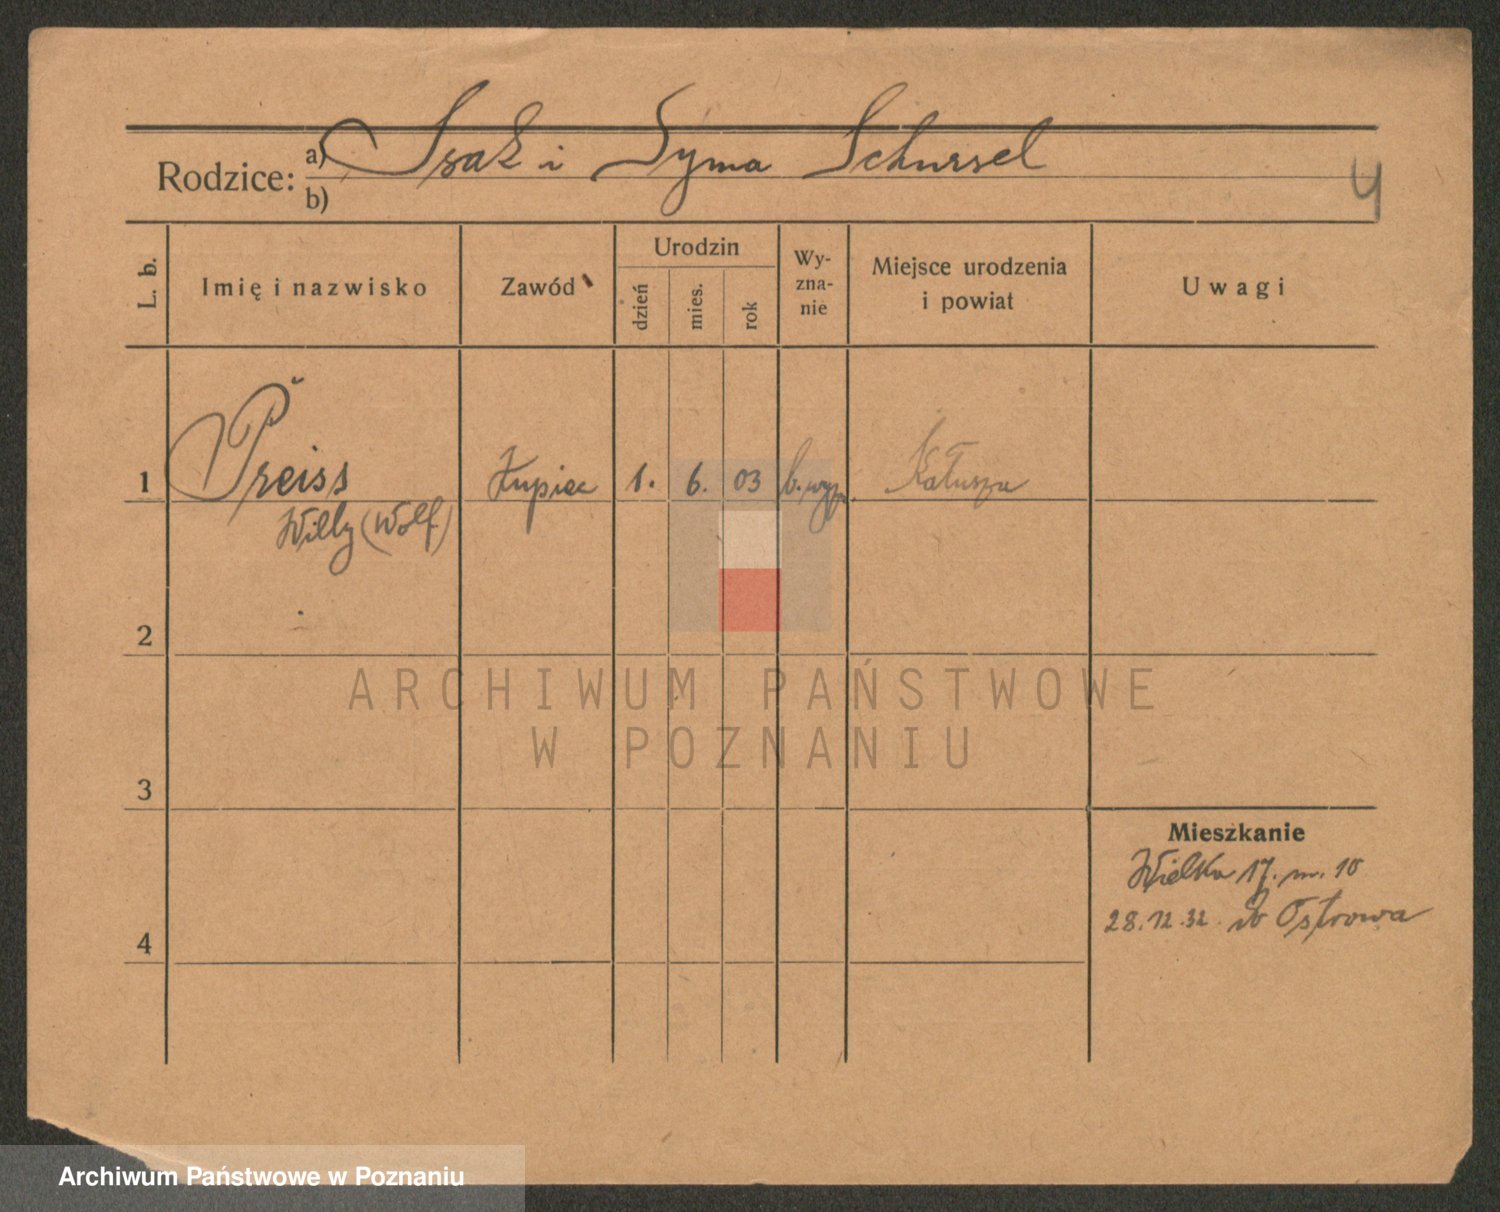 a) Isak i Syma Schussel
Rodzice:
b)
4
L. b.
Imię i nazwisko
Zawód
Urodzin
dzień
mies.
rok
Wy-
zna-
nie
Miejsce urodzenia
i powiat
Uwagi
1 Preiss Kupiec 1. 6. 03 b. wyzn. Kałusza
Willy (Wolf)
2
ARCHIWUM PAŃSTWOWE
W POZNANIU
3
Mieszkanie
Wielka 17. m. 10
28.12.32 do Ostrowa
4
Archiwum Państwowe w Poznaniu